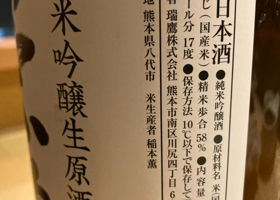 日本酒
●純米吟醸酒 ●原材料名 米(国
じ(国産米) ●精米歩合 58% ●内容量
ール分 17度 ●保存方法 10℃以下で保存して
者 瑞鷹株式会社 熊本市南区川尻四丁目6
地 熊本県八代市 米生産者 稲本薫
米吟醸生原酒